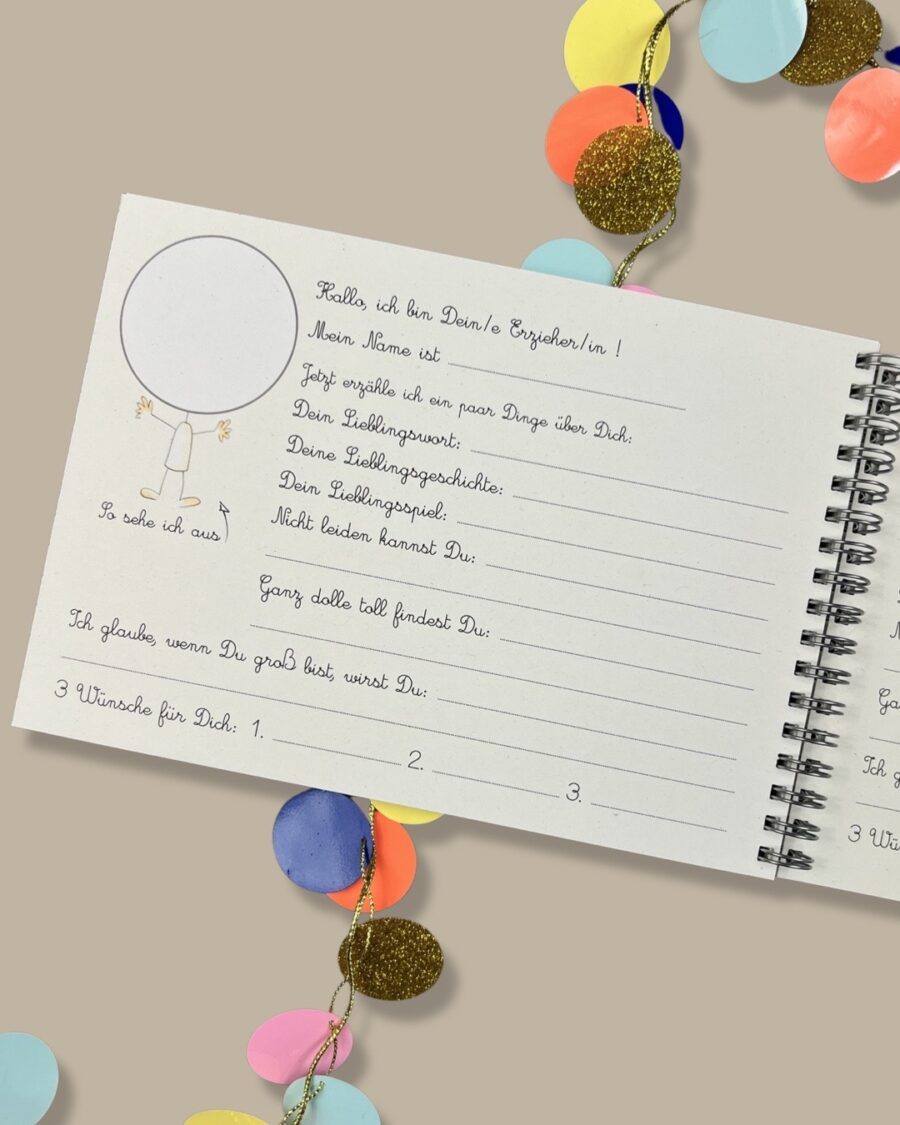 Hallo, ich bin Dein/e Erzieher/in !
Mein Name ist
Jetzt erzähle ich ein paar Dinge über Dich:
Dein Lieblingswort:
Deine Lieblingsgeschichte:
Dein Lieblingsspiel:
Nicht leiden kannst Du:
So sehe ich aus
Ganz dolle toll findest Du:
Ich glaube, wenn Du groß bist, wirst Du:
3 Wünsche für Dich: 1. 2. 3.
Ich g
3 Wü